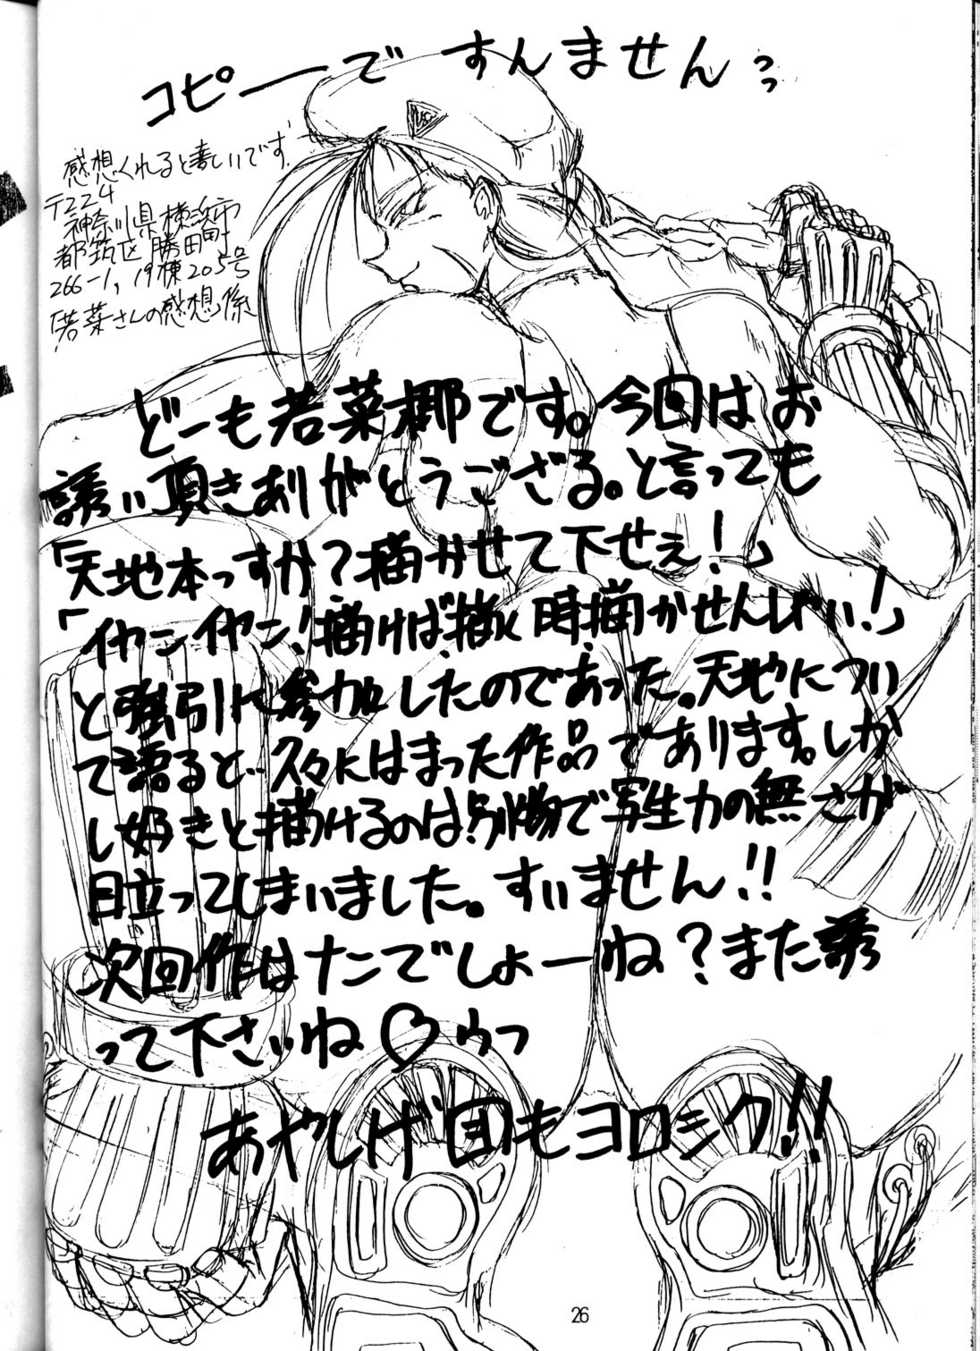 コピーで すんません
感想くれると嬉しいです
〒224
神奈川県横浜市
都筑区勝田町
266-1, 19棟205号
「若菜さんの感想係
どーも若菜椰です。今回はお
誘い頂きありがとうござる。と言っても
「天地本っすか？描かせて下せぇ！」
「イヤンイヤン！描けば、描く時描かせんしゃい！」
と強引に参加したのであった。天地につい
て語ると…久々にはまった作品であります。しか
し好きと描けるのは別物で写生力の無さが
目立ってしまいました。すいません!!
次回作はナンでしょーね？また誘
って下さいね♡ウフ
あやしげ団もヨロシク!!
26